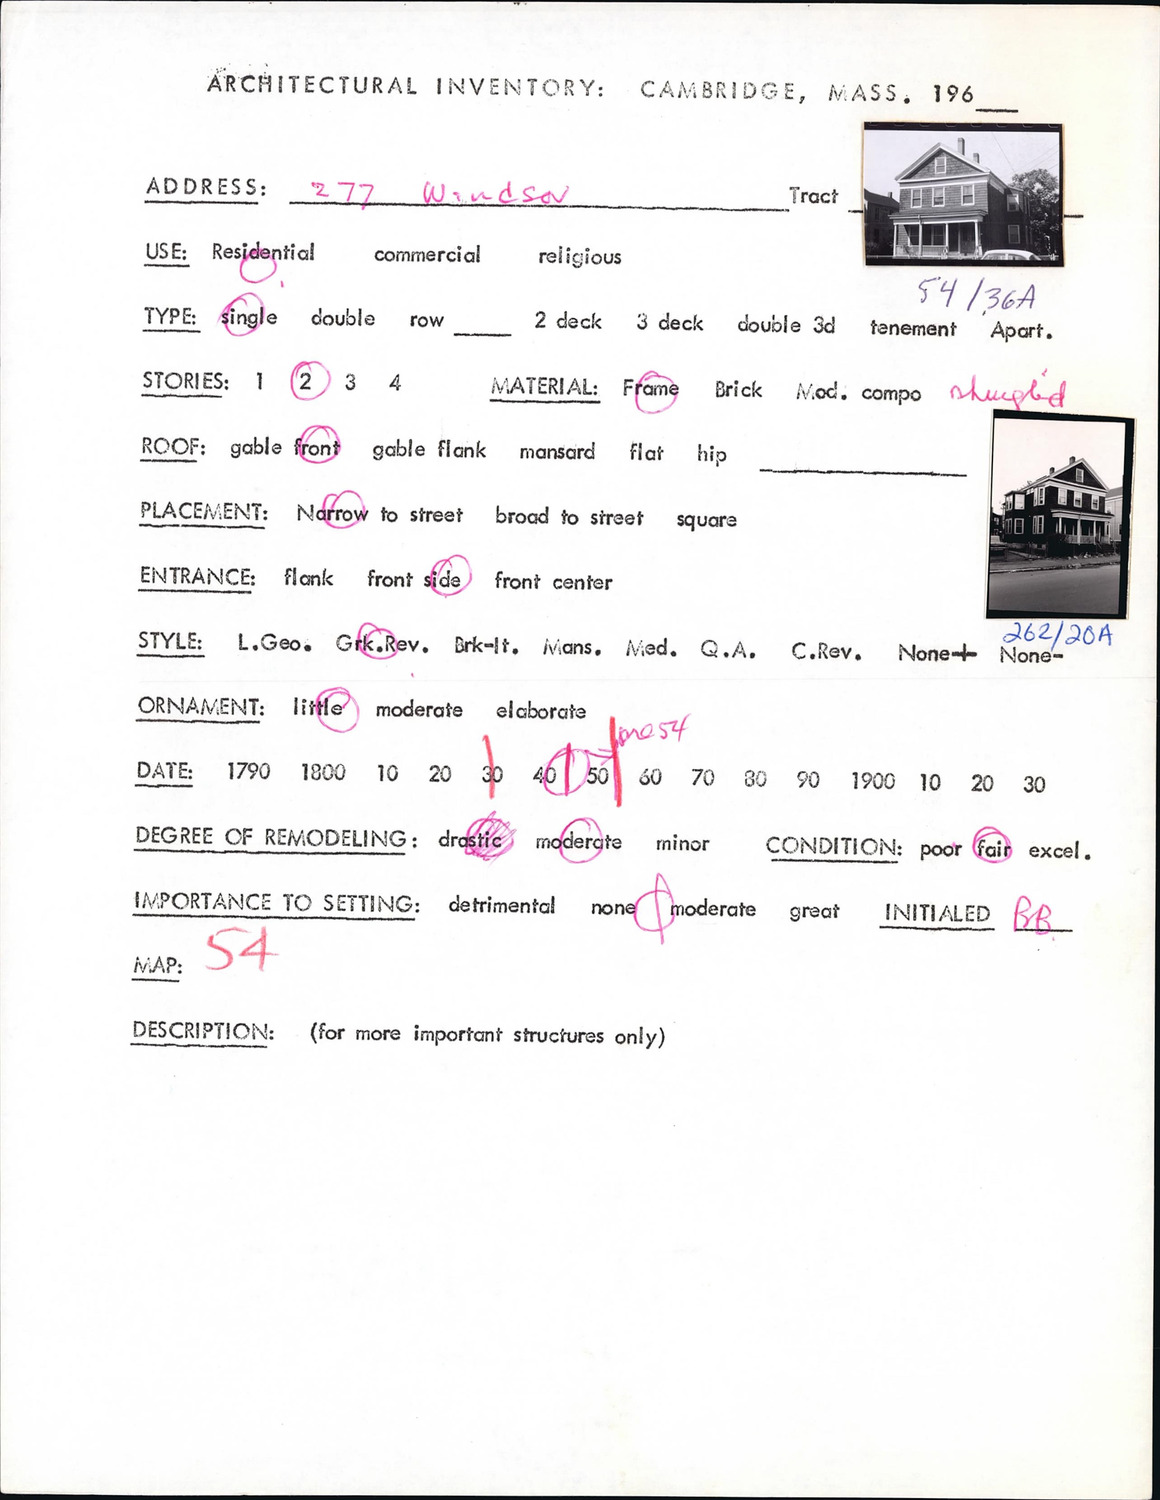 ARCHITECTURAL INVENTORY: CAMBRIDGE, MASS. 196__
ADDRESS: 277 Windsor Tract
USE: Residential commercial religious
54/36A
TYPE: single double row ____ 2 deck 3 deck double 3d tenement Apart.
STORIES: 1 2 3 4 MATERIAL: Frame Brick Mod. compo shingled
ROOF: gable front gable flank mansard flat hip ____
PLACEMENT: Narrow to street broad to street square
ENTRANCE: flank front side front center
262/20A
STYLE: L.Geo. Grk.Rev. Brk-It. Mans. Med. Q.A. C.Rev. None+ None-
ORNAMENT: little moderate elaborate
54
DATE: 1790 1800 10 20 30 40 50 60 70 80 90 1900 10 20 30
DEGREE OF REMODELING: drastic moderate minor CONDITION: poor fair excel.
IMPORTANCE TO SETTING: detrimental none moderate great INITIALED BB
MAP: 54
DESCRIPTION: (for more important structures only)